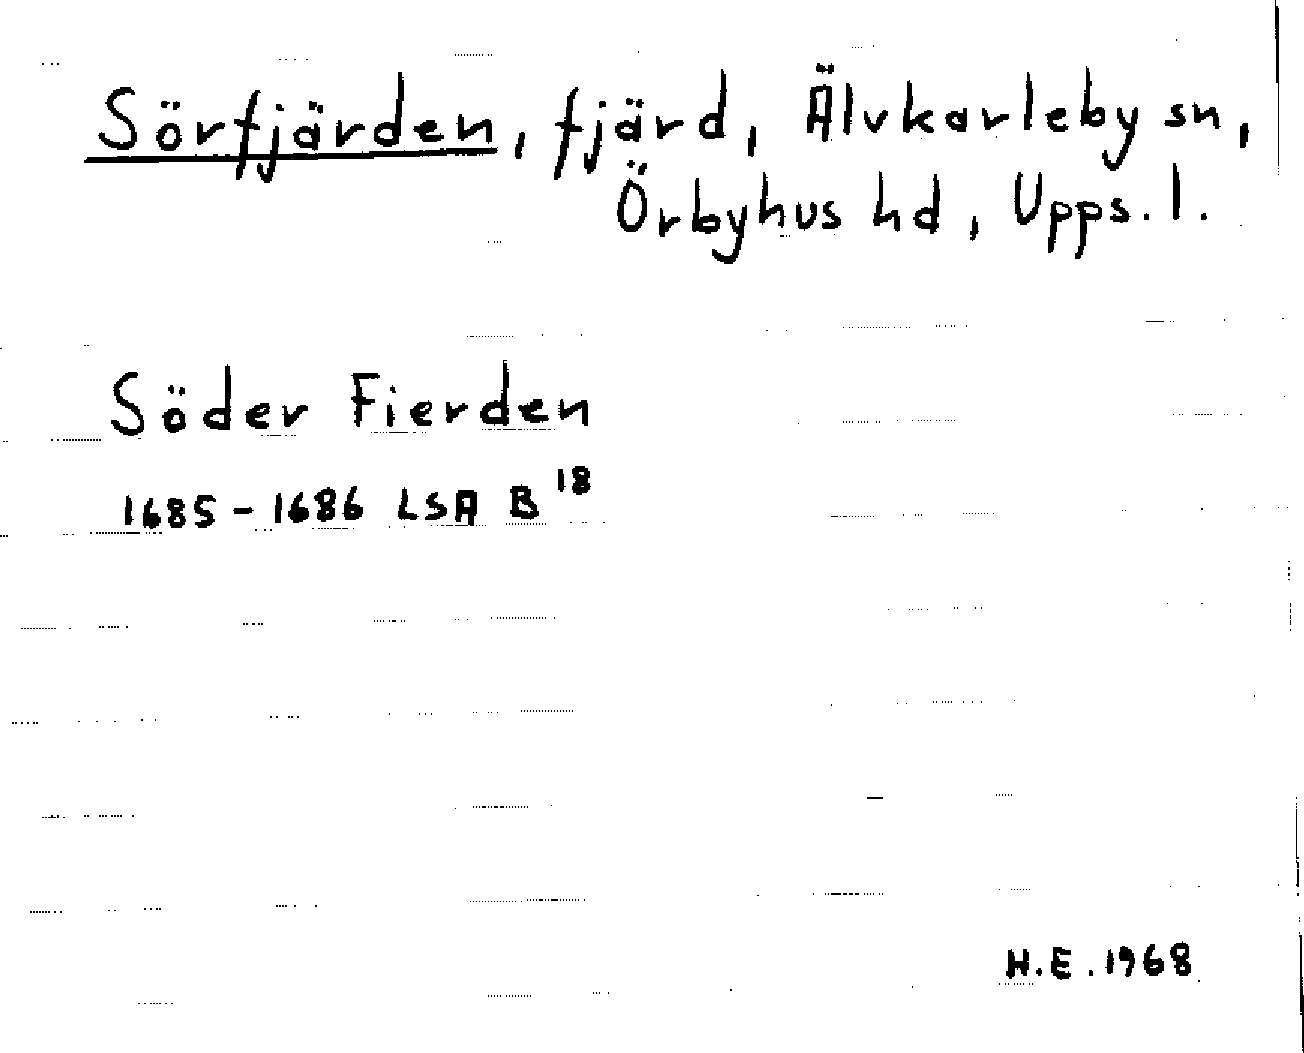 Sörfjärden, fjärd, Älvkarleby sn,
Örbyhus hd, Upps. l.
Söder Fierden
1685-1686 LSA B 18
H.E. 1968